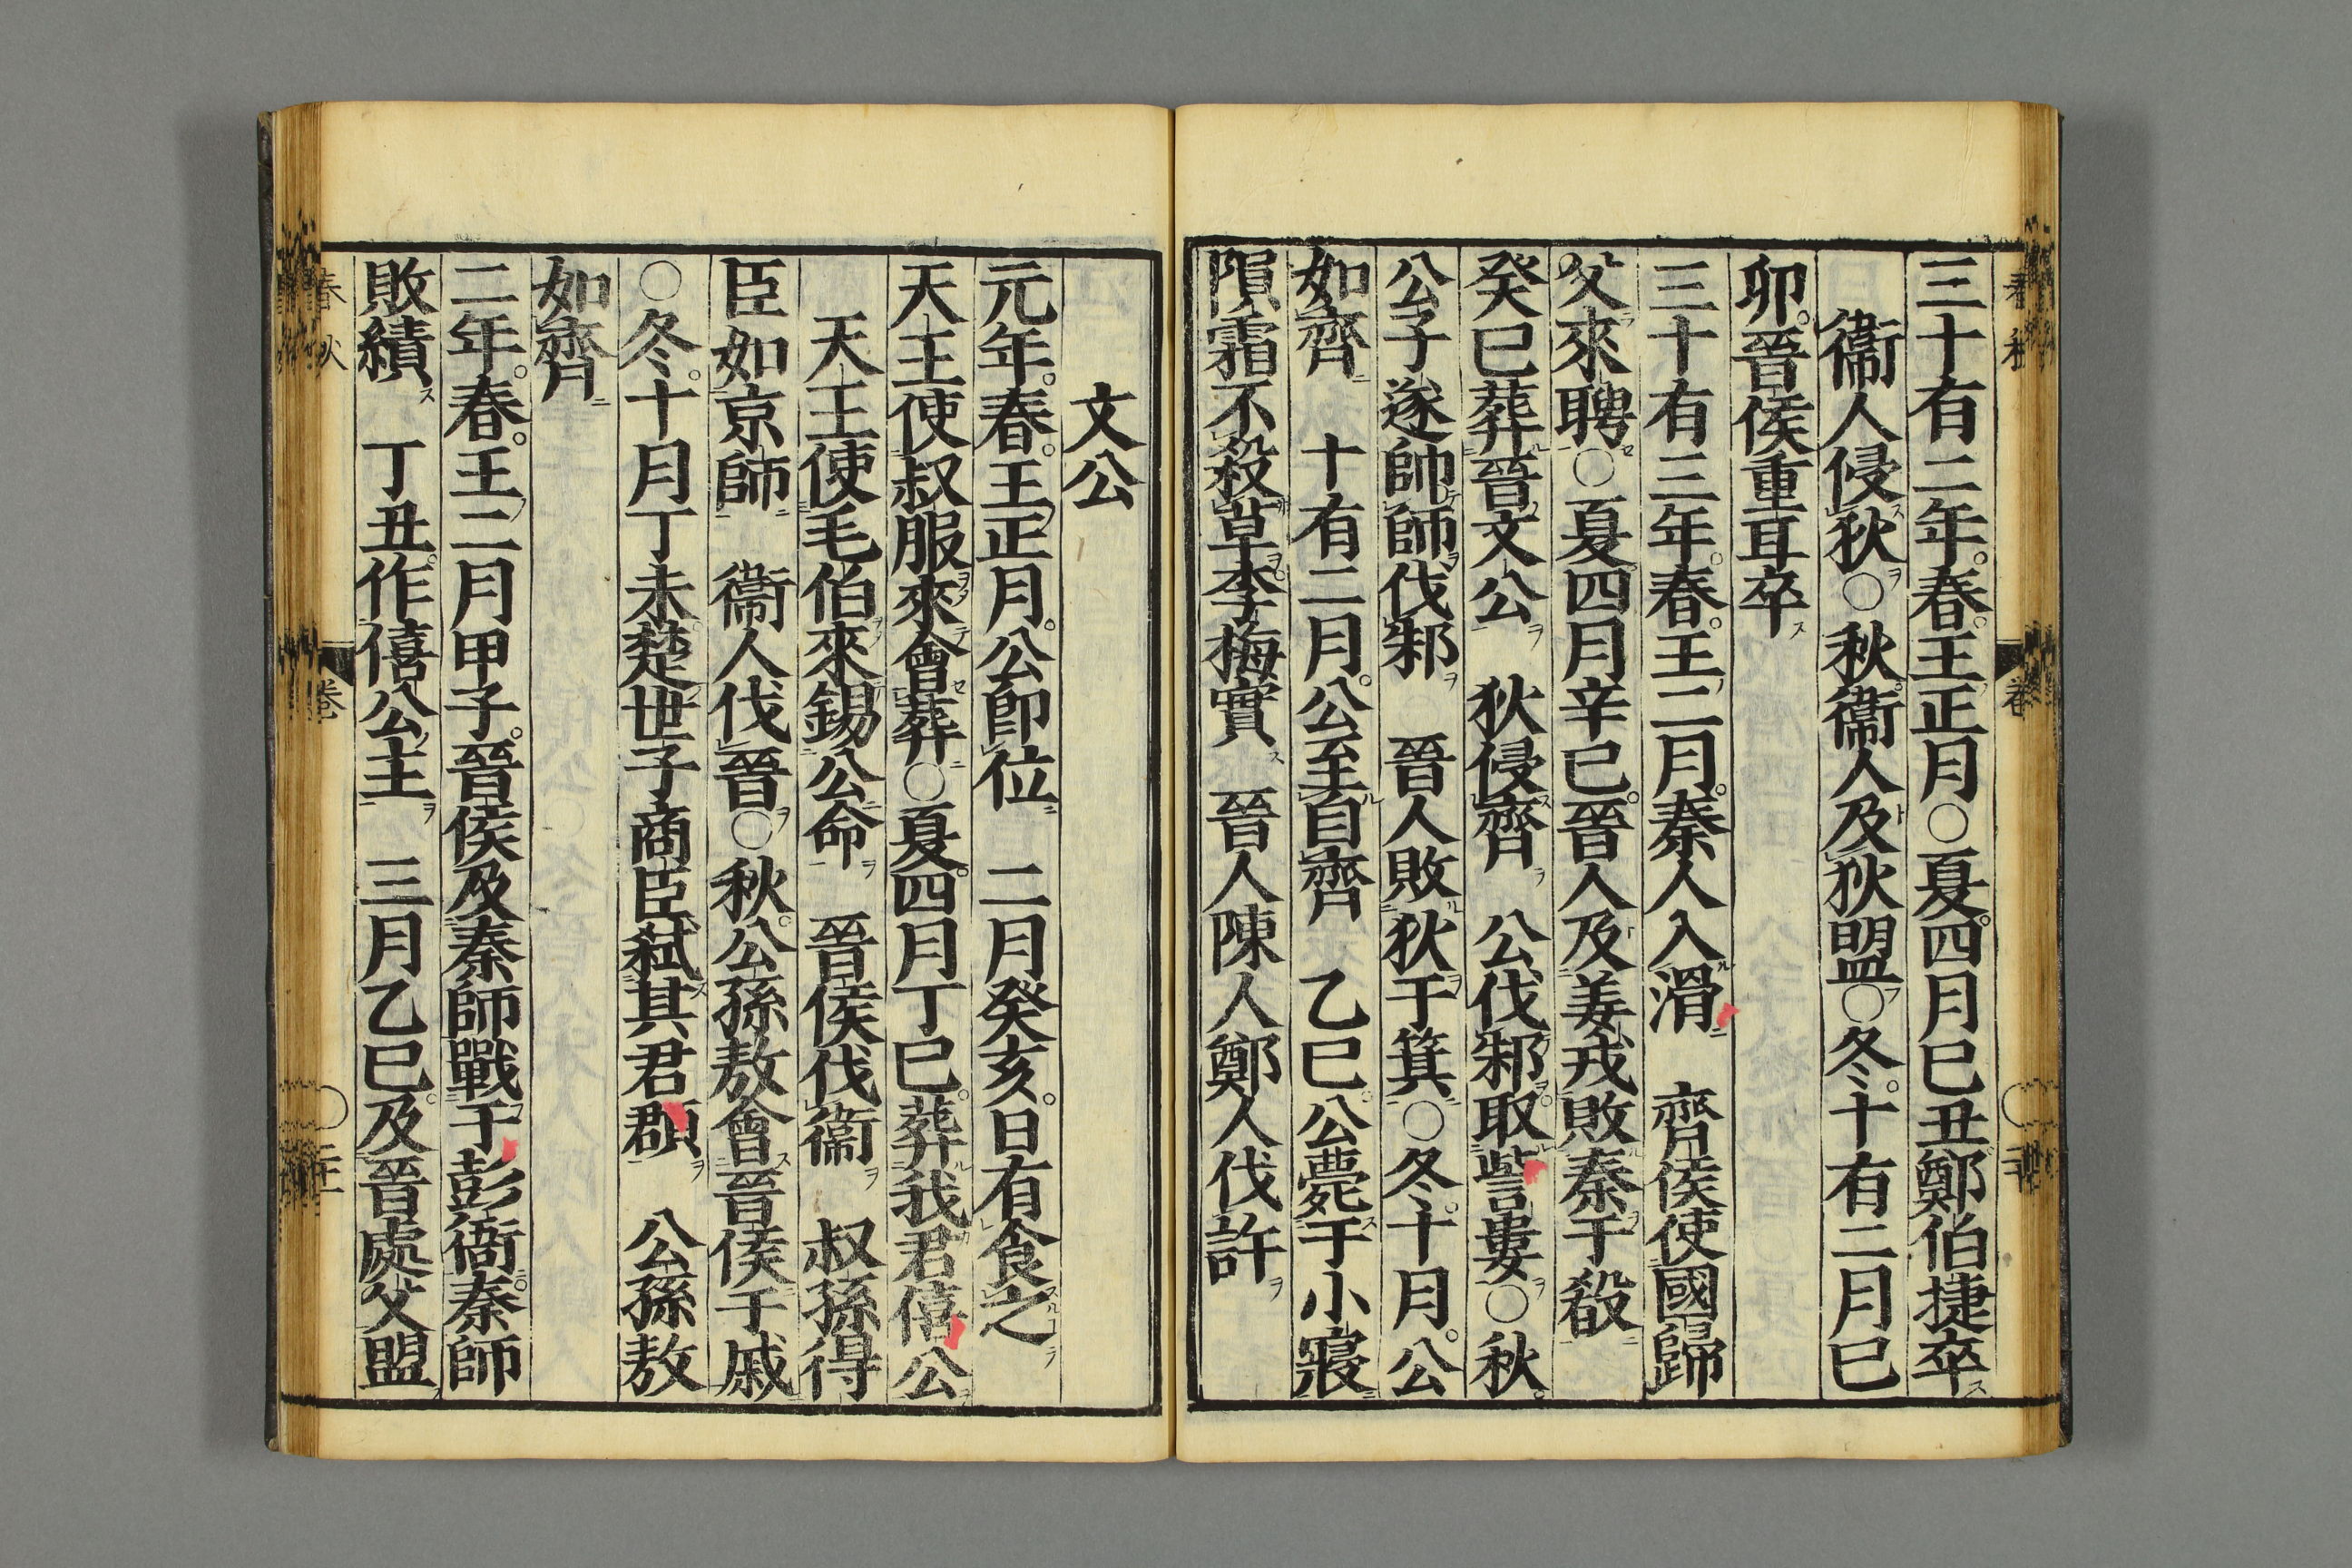 三十有二年春王正月〇夏四月巳丑鄭伯捷卒
衞人侵狄〇秋衞人及狄盟〇冬十有二月巳
卯晉侯重耳卒
三十有三年春王二月秦人入滑　齊侯使國歸
父來聘〇夏四月辛巳晉人及姜戎敗秦于殽
癸巳葬晉文公　狄侵齊　公伐邾取訾婁〇秋
公子遂帥師伐邾　晉人敗狄于箕〇冬十月公
如齊　十有二月公至自齊　乙巳公薨于小寢
隕霜不殺草李梅實　晉人陳人鄭人伐許
文公
元年春王正月公卽位　二月癸亥日有食之
天王使叔服來會葬〇夏四月丁巳葬我君僖公
天王使毛伯來錫公命　晉侯伐衞　叔孫得
臣如京師　衞人伐晉〇秋公孫敖會晉侯于戚
〇冬十月丁未楚世子商臣弑其君頵　公孫敖
如齊
二年春王二月甲子晉侯及秦師戰于彭衙秦師
敗績　丁丑作僖公主　三月乙巳及晉處父盟
春秋
卷